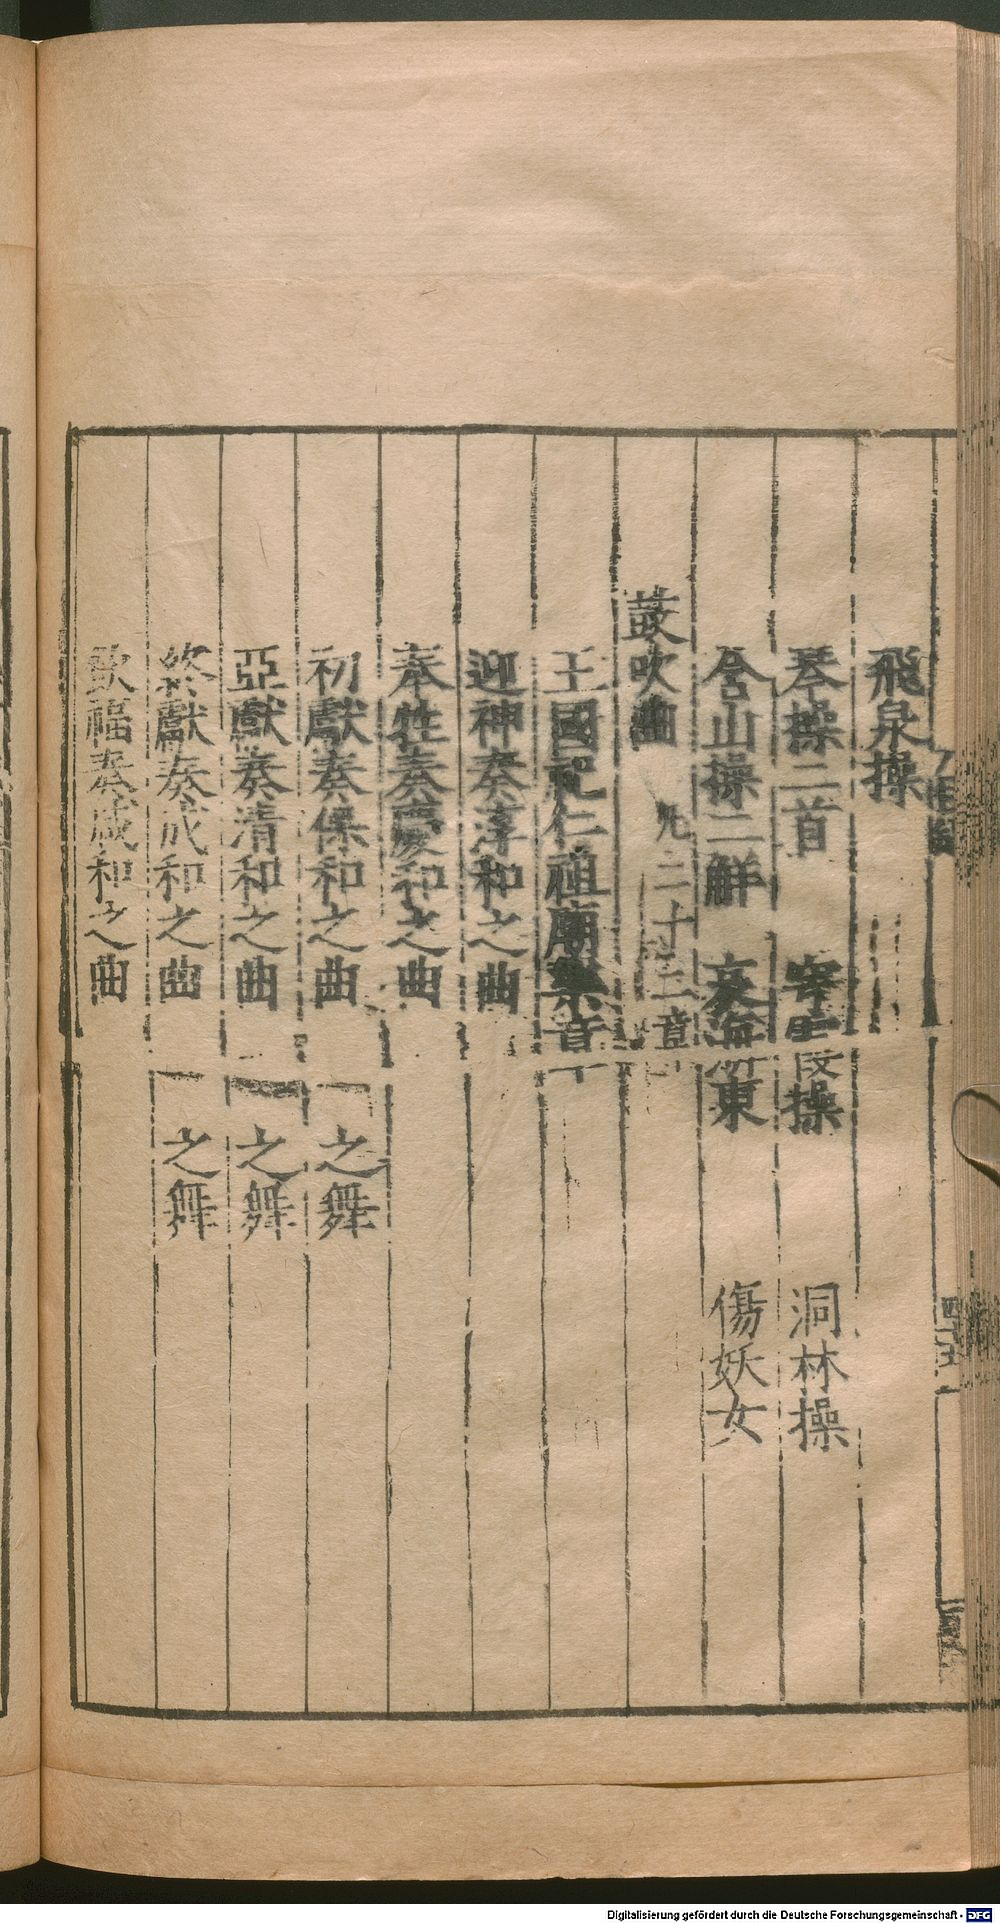 飛泉操
琴操二首 操 洞林操
含山操二解 哀海東 傷妖女
鼓吹曲 凡二十三章
王國祀仁祖廟樂章
迎神奏淳和之曲
奉牲奏慶和之曲
初獻奏保和之曲 之舞
亞獻奏清和之曲 之舞
終獻奏成和之曲 之舞
飲福奏咸和之曲
Digitalisierung gefördert durch die Deutsche Forschungsgemeinschaft - DFG